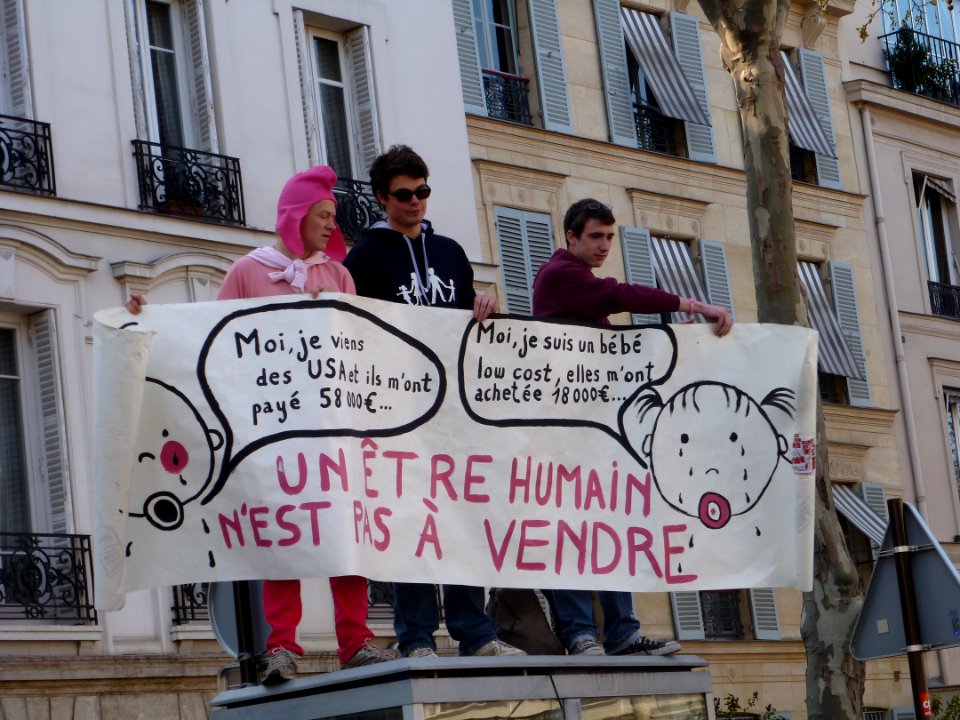 Moi, je viens
des USA et ils m'ont
payé 58 000 €...
Moi, je suis un bébé
low cost, elles m'ont
achetée 18 000 €...
UN ÊTRE HUMAIN
N'EST PAS À VENDRE